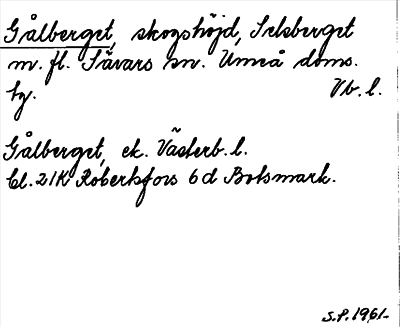 Gålberget, skogshöjd, Selsberget
m. fl. Sävars sn. Umeå doms.
hg. Vb. l.
Gålberget, ek. Västerb. l.
Bl. 21K Robertsfors 6d Botsmark.
S.P. 1961-